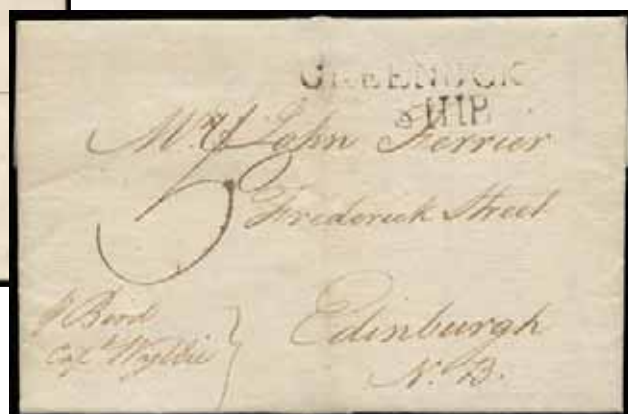 GREENOCK
SHIP
John Ferrier
5
Frederick Street
Edinburgh
N. B.
Capt Wyllie